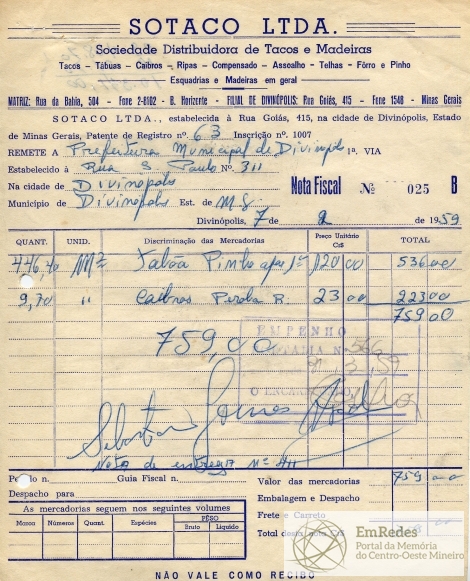 SOTACO LTDA.
Sociedade Distribuidora de Tacos e Madeiras
Tacos - Tábuas - Caibros - Ripas - Compensado - Assoalho - Telhas - Fôrro e Pinho
Esquadrias e Madeiras em geral
MATRIZ: Rua da Bahia, 504 - Fone 2-8102 - B. Horizonte - FILIAL DE DIVINÓPOLIS: Rua Goiás, 415 - Fone 1548 - Minas Gerais
SOTACO LTDA., establecida à Rua Goiás, 415, na cidade de Divinópolis, Estado
de Minas Gerais, Patente de Registro nº 63 Inscrição nº 1007
REMETE A Prefeitura Municipal de Divinópolis 1ª. VIA
Estabelecido à Rua S Paulo Nº. 311
Na cidade de Divinopolis Nota Fiscal Nº 025 B
Município de Divinopolis Est. de M.G.
Divinópolis, 7 de 2 de 1959
QUANT. UNID. Discriminação das Mercadorias Preço Unitário Cr$ TOTAL
M2 Taboa Pinho 120 00 536 00
9,70 " Caibros Peroba R. 23 00 223 00
759 00
759,00
EMPENHO
Nº 566
3.59
Sebastião Gomes
Nota de entrega Nº
Pedido n. Guia Fiscal n. Valor das mercadorias 759 00
Despacho para Embalagem e Despacho
As mercadorias seguem nos seguintes volumes Frete e Carreto
Marca Números Quant. Espécies PÊSO Bruto Líquido Total desta nota Cr$
NÃO VALE COMO RECIBO
EmRedes
Portal da Memória
do Centro-Oeste Mineiro